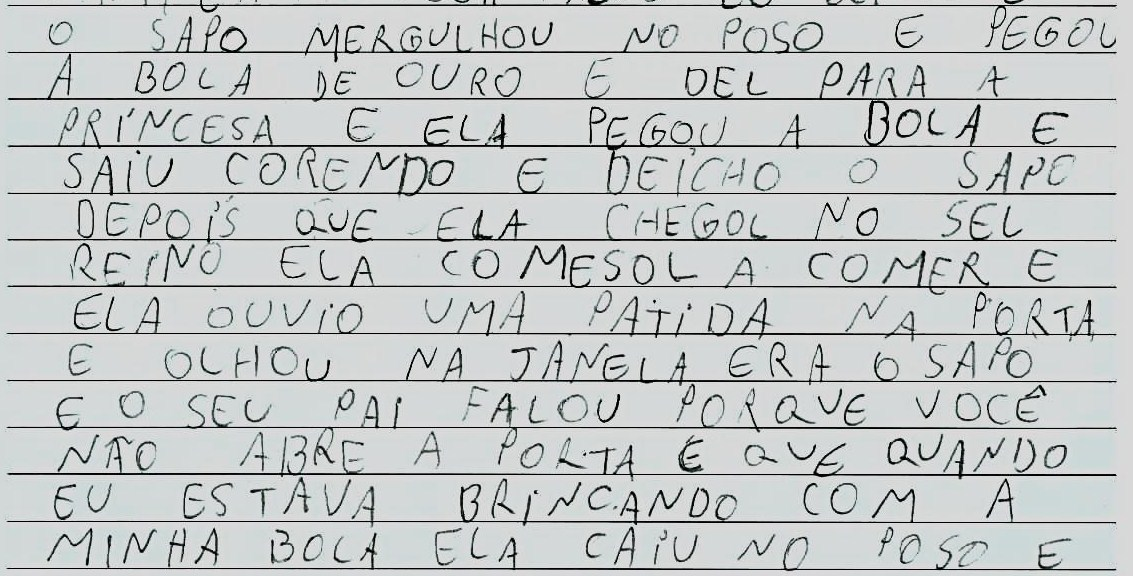 O SAPO MERGULHOU NO POSO E PEGOU
A BOLA DE OURO E DEL PARA A
PRINCESA E ELA PEGOU A BOLA E
SAIU CORENDO E DEICHO O SAPO
DEPOIS QUE ELA CHEGOL NO SEL
REINO ELA COMESOL A COMER E
ELA OUVIO UMA PATIDA NA PORTA
E OLHOU NA JANELA ERA O SAPO
E O SEU PAI FALOU PORQUE VOCÊ
NÃO ABRE A PORTA E QUE QUANDO
EU ESTAVA BRINCANDO COM A
MINHA BOLA ELA CAIU NO POSO E